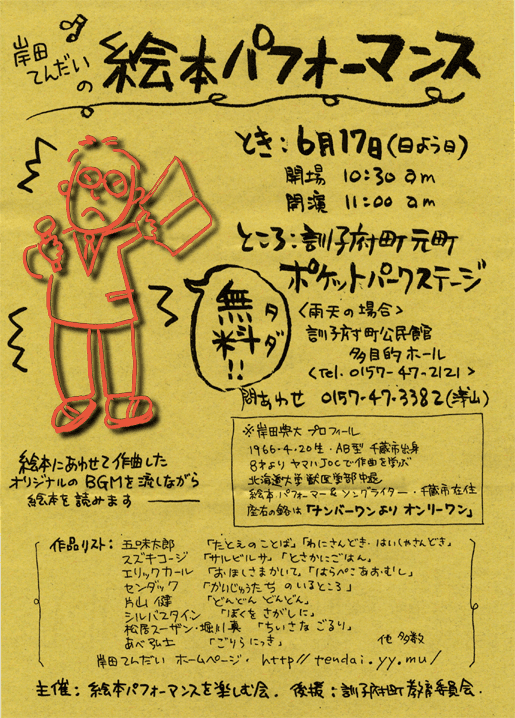 岸田
てんだい
の
絵本パフォーマンス
とき：6月17日（日よう日）
開場 10:30 am
開演 11:00 am
ところ：訓子府町元町
ポケットパークステージ
無料!!
タダ
〈雨天の場合〉
訓子府町公民館
多目的ホール
〈Tel. 0157-47-2121〉
問あわせ 0157-47-3382(津山)
※岸田典大 プロフィール
1966・4・20生・AB型 千歳市出身
8才より ヤマハJOCで作曲を学ぶ
北海道大学獣医学部中退
絵本パフォーマー＆ソングライター・千歳市在住
座右の銘は「ナンバーワンより オンリーワン」
絵本にあわせて作曲した
オリジナルの BGMを流しながら
絵本を読みます
作品リスト： 五味太郎 「たとえのことば」「わにさんどき・はいしゃさんどき」
スズキコージ 「サルビルサ」「とさかにごはん」
エリックカール 「おほしさまかいて」「はらぺこあおむし」
センダック 「かいじゅうたちのいるところ」
片山 健 「どんどん どんどん」
シルバスタイン 「ぼくを さがしに」
松居スーザン・堀川真 「ちいさな ごるり」
あべ弘士 「ごりらにっき」 他 多数
岸田てんだい ホームページ・ http//tendai.yy.mu/
主催：絵本パフォーマンスを楽しむ会. 後援：訓子府町教育委員会.